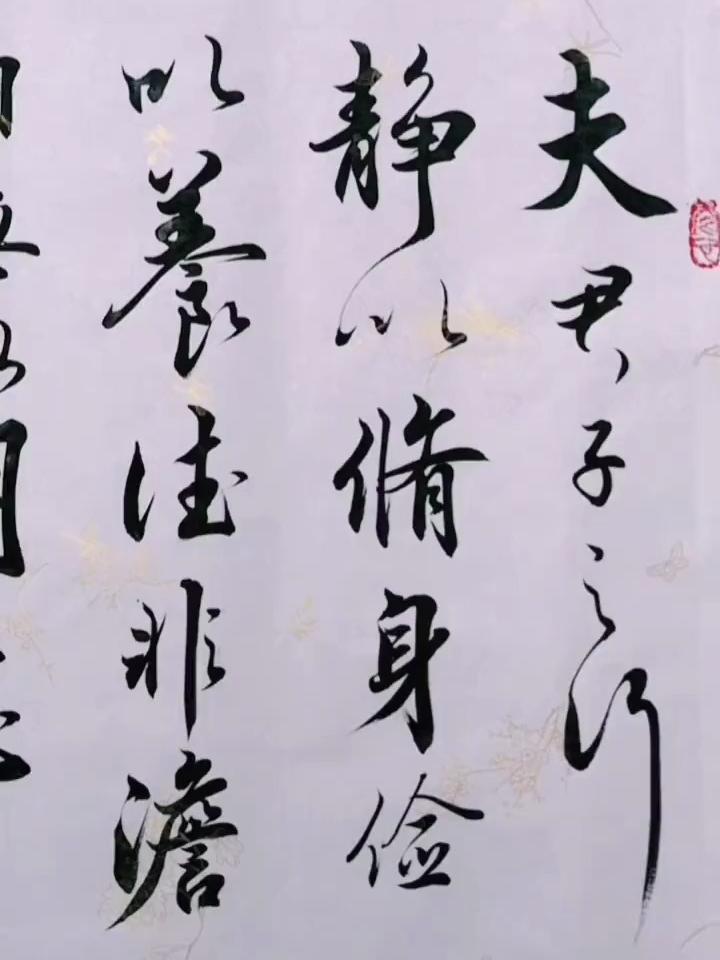 夫君子之行
静以脩身俭
以養德非澹